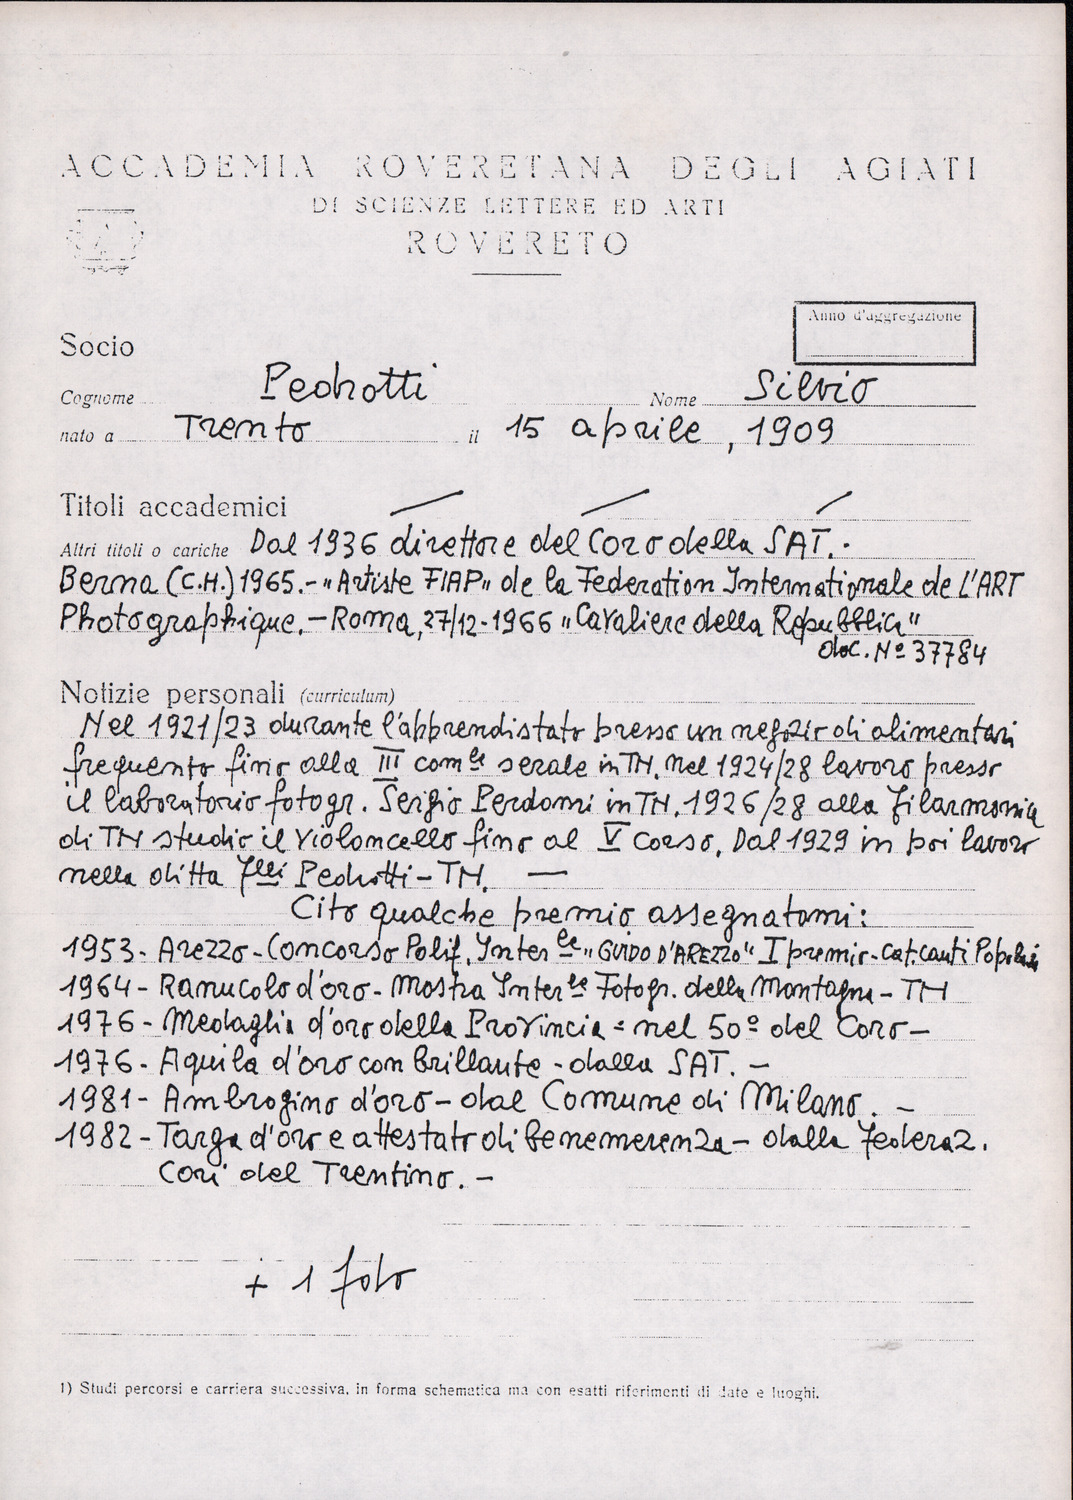 ACCADEMIA ROVERETANA DEGLI AGIATI
DI SCIENZE LETTERE ED ARTI
ROVERETO
Anno d'aggregazione
Socio
Cognome Pedrotti Nome Silvio
nato a Trento il 15 aprile, 1909
Titoli accademici
Altri titoli o cariche Dal 1936 direttore del Coro della SAT.-
Berna (C.H.) 1965.- "Artiste FIAP" de la Federation Internationale de L'ART
Photographique. – Roma, 27/12-1966 "Cavaliere della Repubblica"
doc. Nº 37784
Notizie personali (curriculum)
Nel 1921/23 durante l'apprendistato presso un negozio di alimentari
frequento fino alla III comle serale in TN. Nel 1924/28 lavoro presso
il laboratorio fotogr. Sergio Perdomi in TN. 1926/28 alla Filarmonica
di TN studio il violoncello fino al V corso. Dal 1929 in poi lavoro
nella ditta Flli Pedrotti – TN. —
Cito qualche premio assegnatomi:
1953 - Arezzo - Concorso Polif. Interle "GUIDO D'AREZZO" I premio - cat. canti Popolari
1964 - Ranucolo d'oro - Mostra Interle Fotogr. della Montagna – TN
1976 - Medaglia d'oro della Provincia = nel 50º del Coro –
1976 - Aquila d'oro con brillante - dalla SAT. –
1981 - Ambrogino d'oro – dal Comune di Milano. –
1982 - Targa d'oro e attestato di benemerenza – dalla Federaz.
Cori del Trentino. –
+ 1 foto
1) Studi percorsi e carriera successiva, in forma schematica ma con esatti riferimenti di date e luoghi.